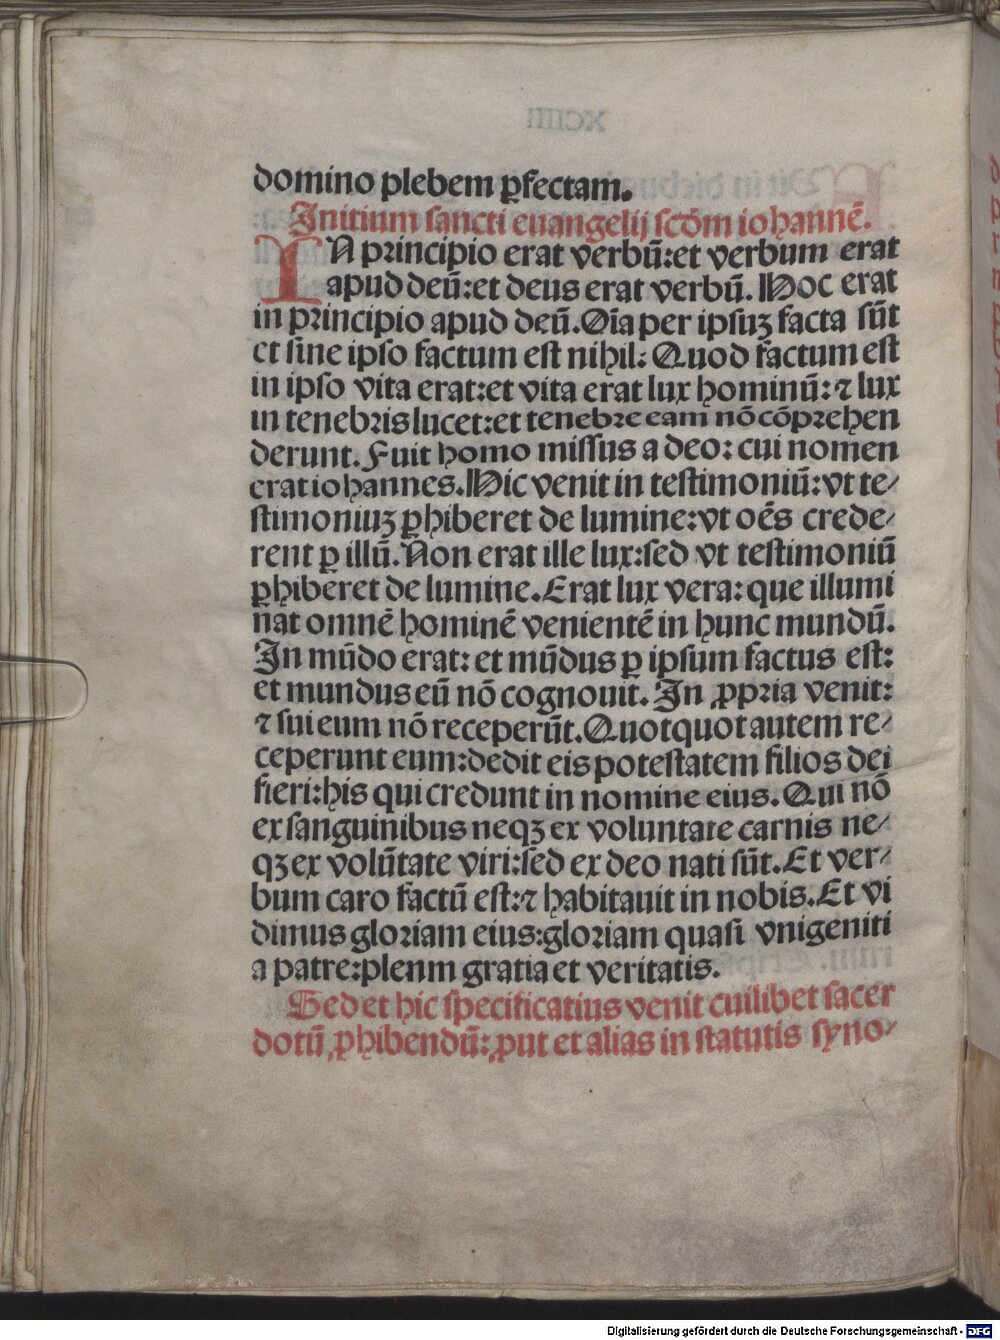 domino plebem ꝑfectam.
Initium sancti euangelij scḋm iohannē.
IN principio erat verbū:et verbum erat
apud deū:et deus erat verbū. Hoc erat
in principio apud deū.Oīa per ipsuꝫ facta sūt
et sine ipso factum est nihil: Quod factum est
in ipso vita erat:et vita erat lux hominū:⁊ lux
in tenebris lucet:et tenebre eam nō cōprehen
derunt.Fuit homo missus a deo: cui nomen
erat iohannes.Hic venit in testimoniū:vt te⸗
stimoniuꝫ ꝑhiberet de lumine:vt oēs crede⸗
rent ꝑ illū.Non erat ille lux:sed vt testimoniū
ꝑhiberet de lumine.Erat lux vera:que illumi
nat omnē hominē venientē in hunc mundū.
In mūdo erat: et mūdus ꝑ ipsum factus est:
et mundus eū nō cognouit. In ꝓpria venit:
⁊ sui eum nō receperūt.Quotquot autem re⸗
ceperunt eum:dedit eis potestatem filios dei
fieri:his qui credunt in nomine eius.Qui nō
ex sanguinibus neqꝫ ex voluntate carnis ne⸗
qꝫ ex volūtate viri:sed ex deo nati sūt.Et ver⸗
bum caro factū est:⁊ habitauit in nobis.Et vi
dimus gloriam eius:gloriam quasi vnigeniti
a patre:plenm gratia et veritatis.
Sed et hic specificatius venit cuilibet sacer
dotū ꝓhibendū:ꝓut et alias in statutis syno⸗
Digitalisierung gefördert durch die Deutsche Forschungsgemeinschaft - DFG